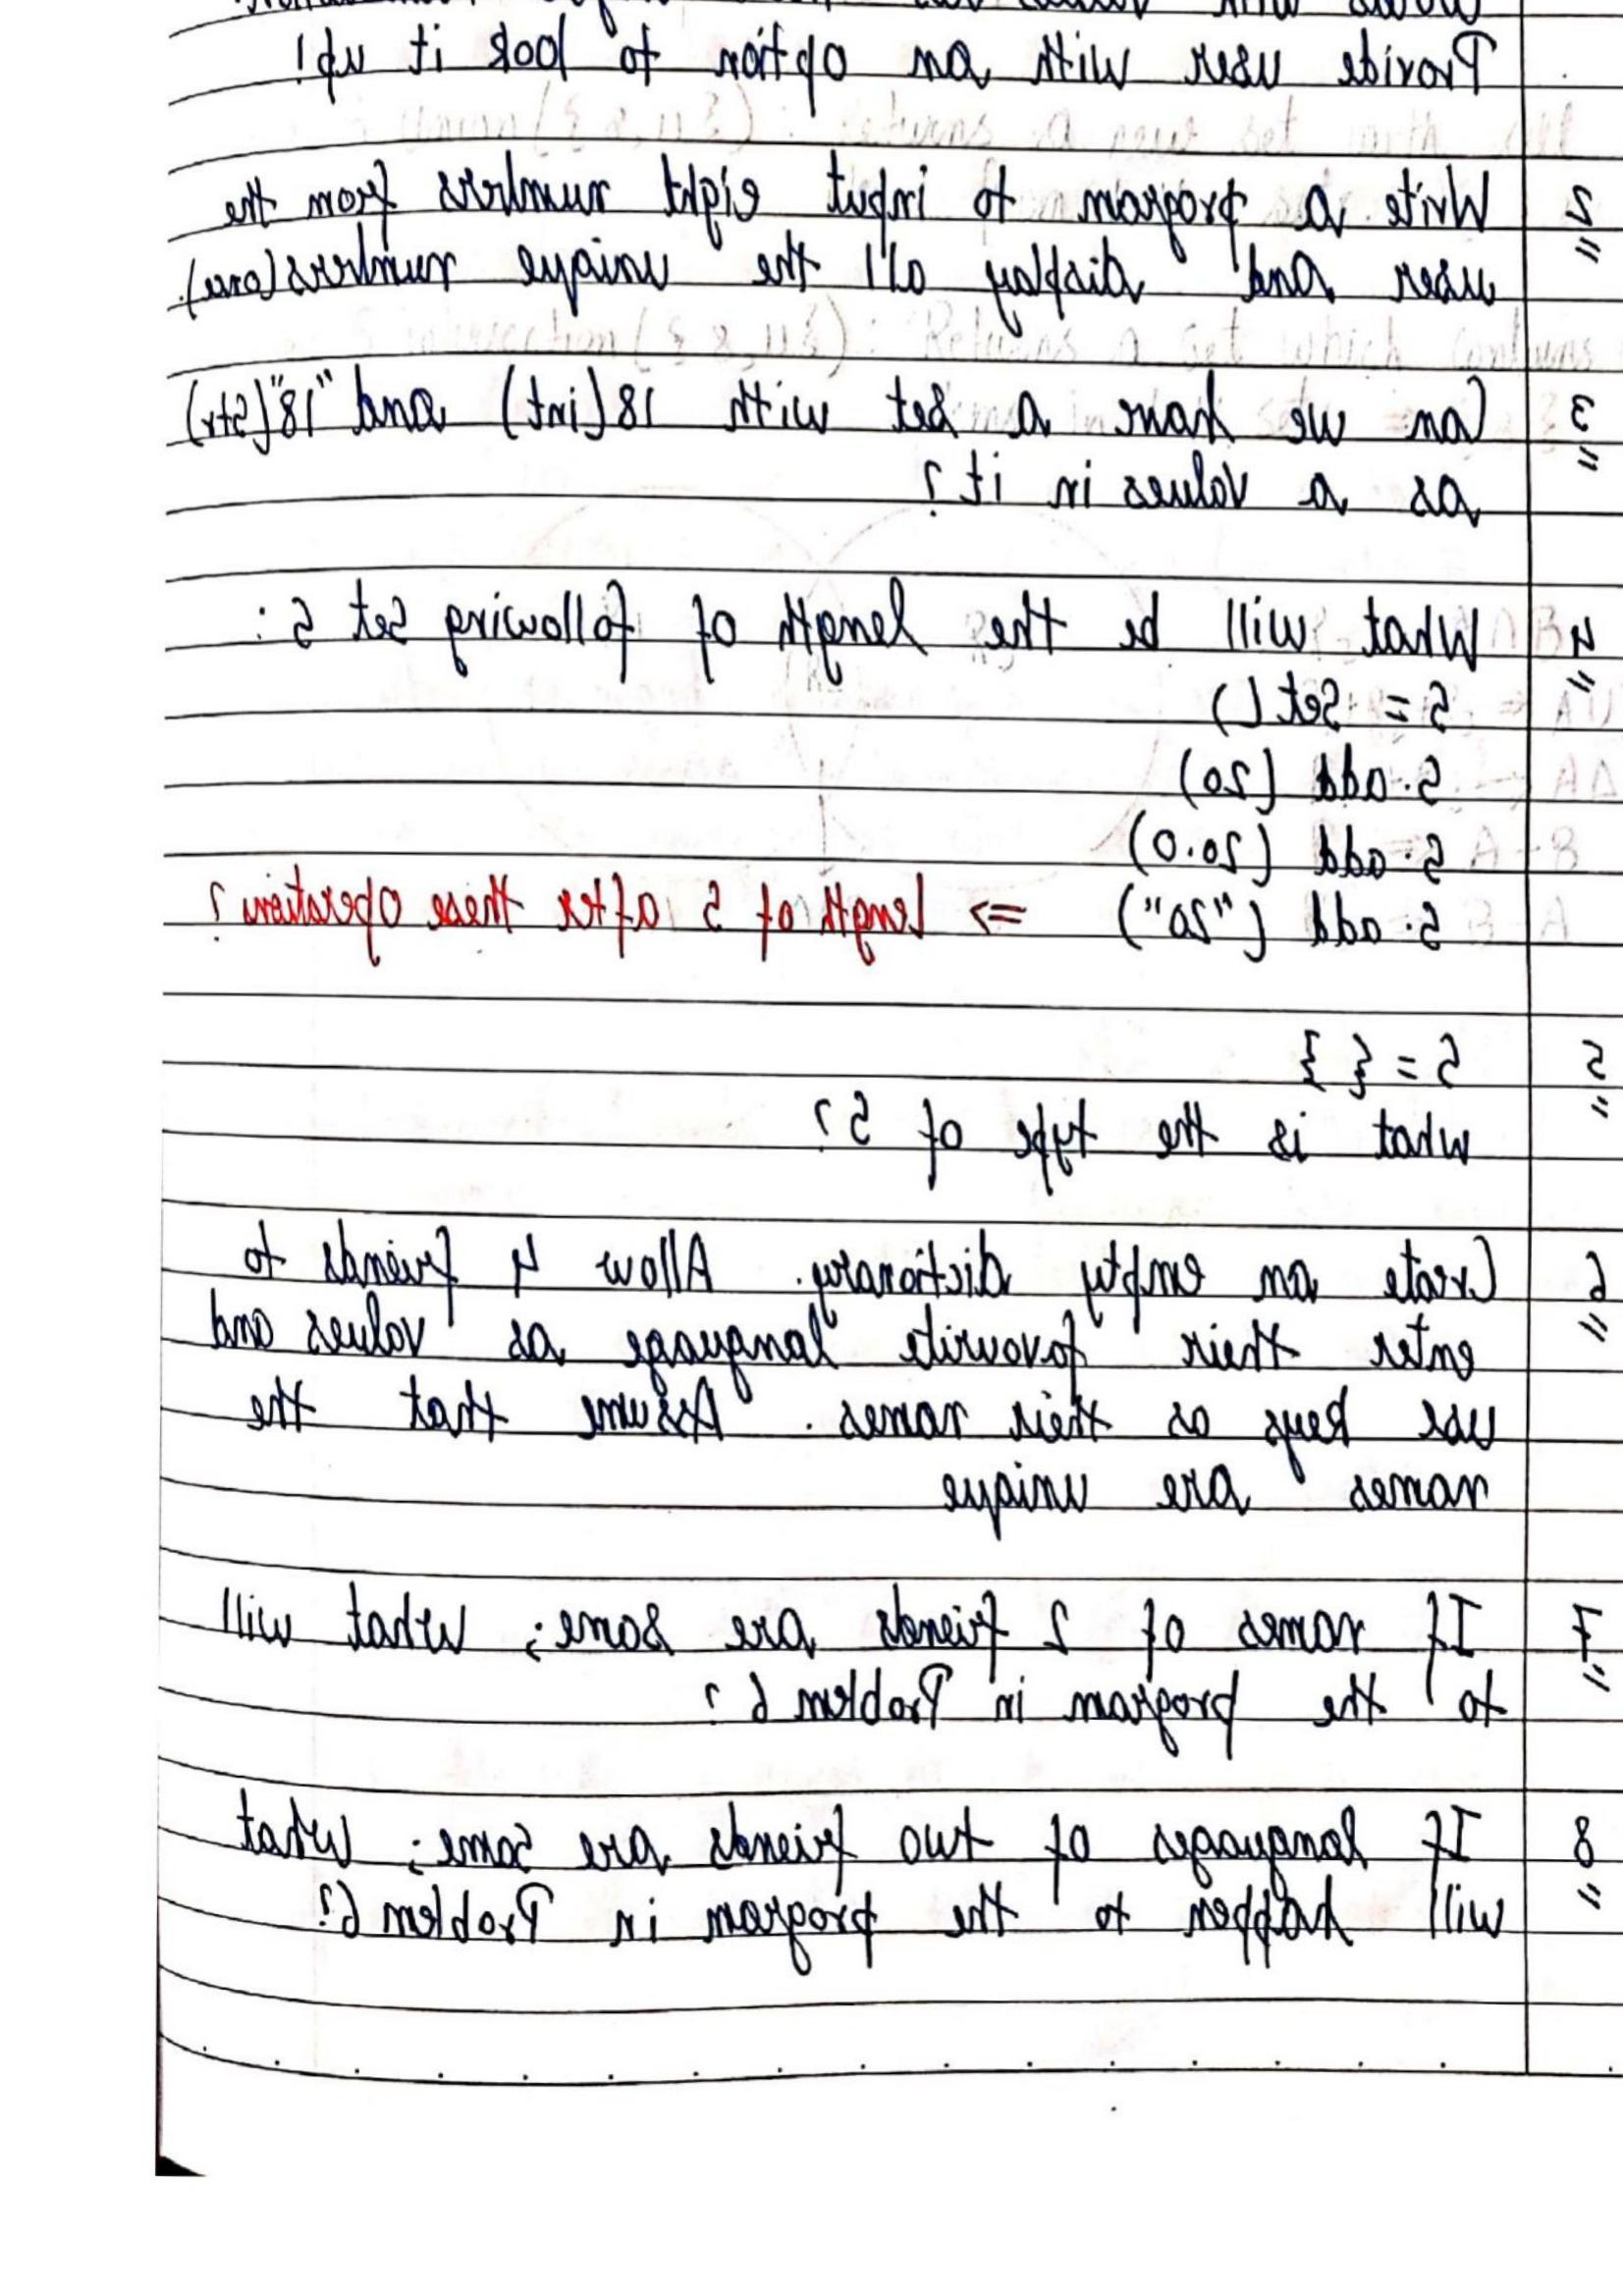 Provide user with an option to look it up!
2 Write a program to input eight numbers from the
user and display all the unique numbers (once).
3 Can we have a set with 18 (int) and "18" (str)
as a values in it?
4 What will be the length of following set S:
S = Set ()
S.add (20)
S.add (20.0)
S.add ("20") => length of S after these operations?
5 S = { }
what is the type of S?
6 Create an empty dictionary. Allow 4 friends to
enter their favourite language as values and
use keys as their names. Assume that the
names are unique
7 If names of 2 friends are same; what will
to the program in Problem 6?
8 If languages of two friends are same; what
will happen to the program in Problem 6?